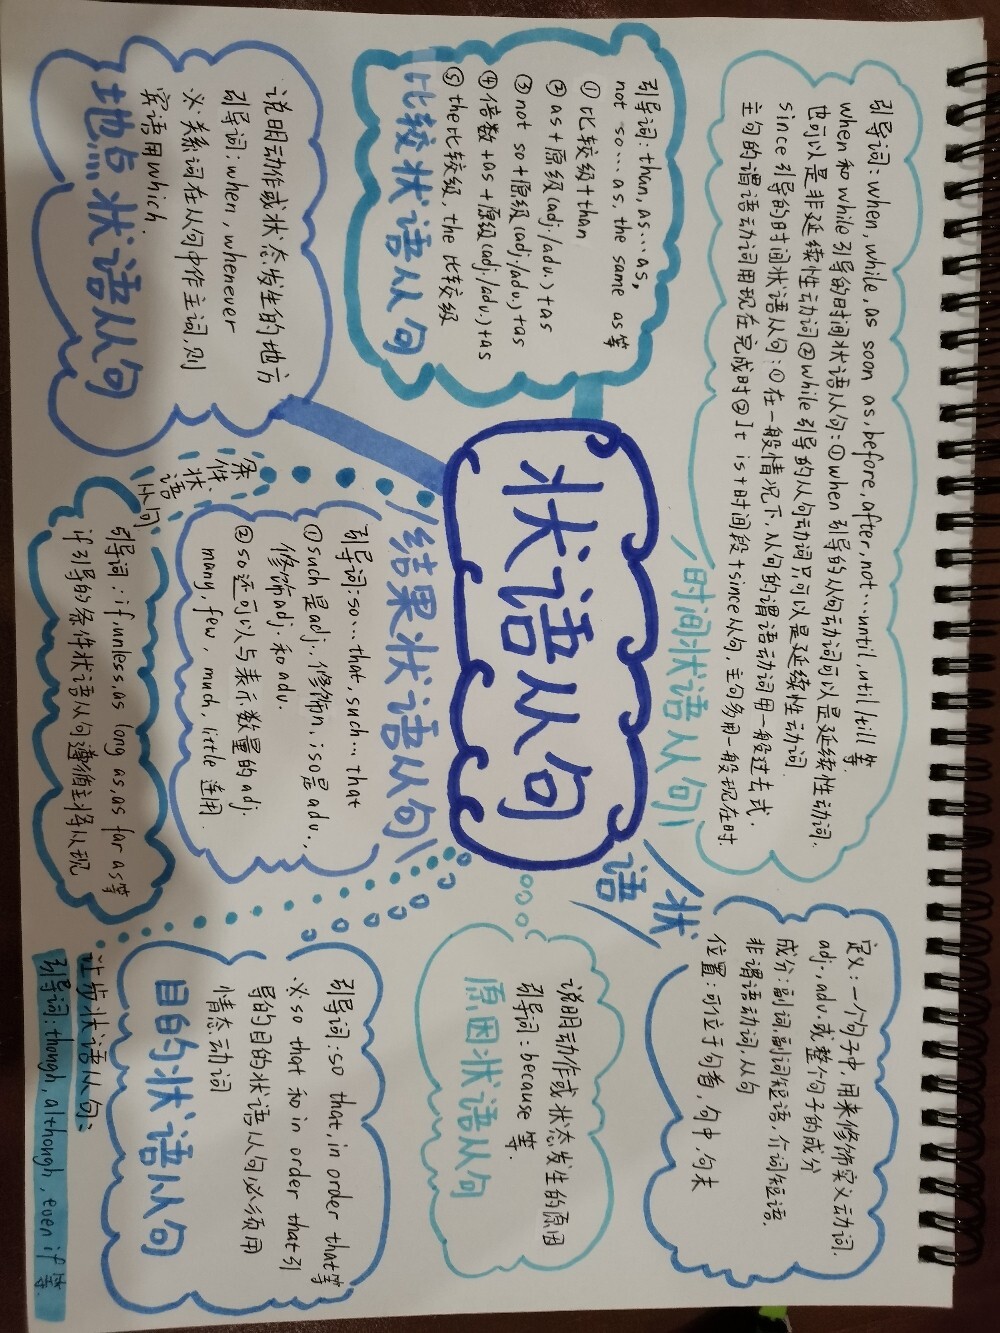 状语从句
时间状语从句
引导词：when, while, as soon as, before, after, not…until, until/till 等
when 和 while 引导的时间状语从句：①when 引导的从句动词可以是延续性动词，
也可以是非延续性动词②while 引导的从句动词只可以是延续性动词
since 引导的时间状语从句：①在一般情况下，从句的谓语动词用一般过去式，
主句的谓语动词用现在完成时②It is+时间段+since从句，主句多用一般现在时.
状语
定义：一个句子中用来修饰实义动词.
adj.,adv.或整个句子的成分
成分：副词,副词短语,介词短语.
非谓语动词,从句
位置：可位于句首,句中,句末
比较状语从句
引导词：than, as…as,
not so…as, the same as等
①比较级+than
②as+原级(adj./adv.)+as
③not so+原级(adj./adv.)+as
④倍数+as+原级(adj./adv.)+as
⑤the比较级, the 比较级
地点状语从句
说明动作或状态发生的地方
引导词：when, whenever
※关系词在从句中作主词,则
宾语用which.
结果状语从句
引导词：so…that, such…that
①such是adj.,修饰n.；so是adv.,
修饰adj.和adv.
②so还可以与表示数量的adj.
many, few, much, little 连用.
条件状语从句
引导词：if, unless, as long as, as far as等
if引导的条件状语从句遵循主将从现
原因状语从句
说明动作或状态发生的原因
引导词：because 等.
目的状语从句
引导词：so that, in order that等
※so that 和 in order that引
导的目的状语从句,必须用
情态动词
让步状语从句：
引导词：though, although, even if 等.